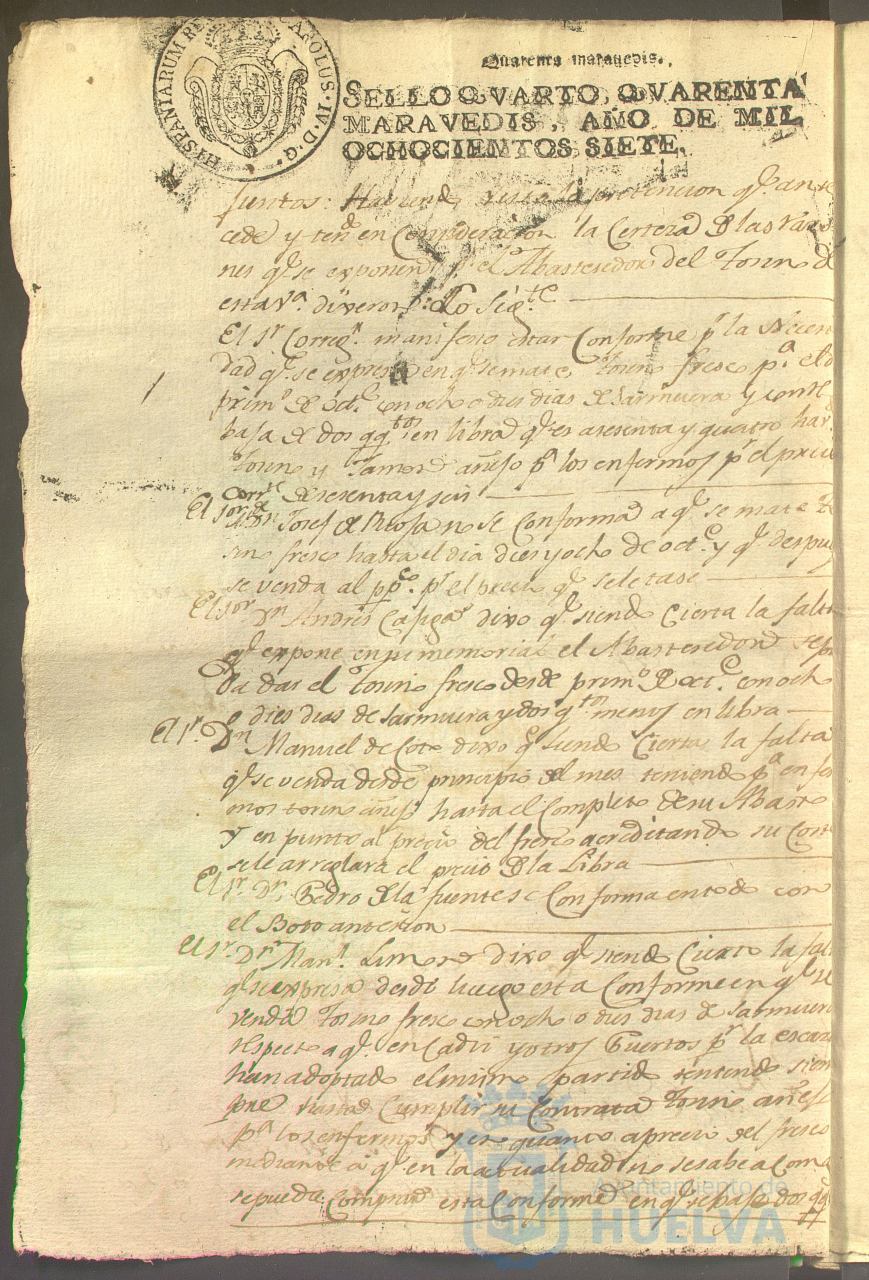 HYSPANIARUM RE CAROLUS·IV·D·G·
Quarenta maravedis.
SELLO QVARTO, QVARENTA
MARAVEDIS, AÑO DE MIL
OCHOCIENTOS SIETE.
juntos: Haviendo visto la pretencion qe. ante
cede y tendo. en Consideracion la Certeza de las Razo
nes qe. se exponen pr. el Abastesedor del Tosino de
esta Va. dixeron: Lo Sigte.
El Sr. Corregr. manifesto estar Conforme pr. la Nesesi
dad qe. se expresa en qe. se mate Tosino fresco pa. el d
primo. de Octe. con ocho o dies dias de Sarmuera y con
baja de dos qtos. en libra qe. es a sesenta y quatro
Tosino y Jamon añejo pa. los enfermos pr. el preci
corrte. de sesenta y seis
El Sor. Dn. Josef de no se Conforma a qe. se mate To
sino fresco hasta el dia dies y ocho de octe. y qe. despues
se venda al ppco. pr. el precio qe. se le tase
El Sor. Dn. Andres dixo qe. siendo Cierta la falta
qe. expone en su memorial el Abastesedor se pu
da dar el Tosino fresco desde primo. de Octe. con ocho
o dies dias de Sarmuera y dos qtos. menos en libra
El Sr. Dn. Manuel de Cote dixo qe. siendo Cierta la falta
qe. se venda desde principio del mes teniendo pa. enfer
mos tosino añejo hasta el Completo de su Abasto
Y en punto al precio del fresco acreditando su Costo
se le arreglará el precio de la Libra
El Sr. Dn. Pedro de la fuente se Conforma en todo con
el Boto anterior
El Sr. Dn. Manl. Limon dixo qe. siendo Cierta la fal
qe. se expresa desde luego esta Conforme en qe. se
venda Tosino fresco con ocho o dies dias de Sarmuera
respecto a qe. en Cadiz y otros Puertos pr. la escaz
han adoptado el mismo partido teniendo siem
pre hasta Cumplir su Contrata Tosino añejo
pa. los enfermos y en quanto a precio del fresco
mediante a qe. en la actualidad no se sabe a como
se pueda Comprar esta Conforme en qe. se baje dos qtos
Ayuntamiento de
HUELVA